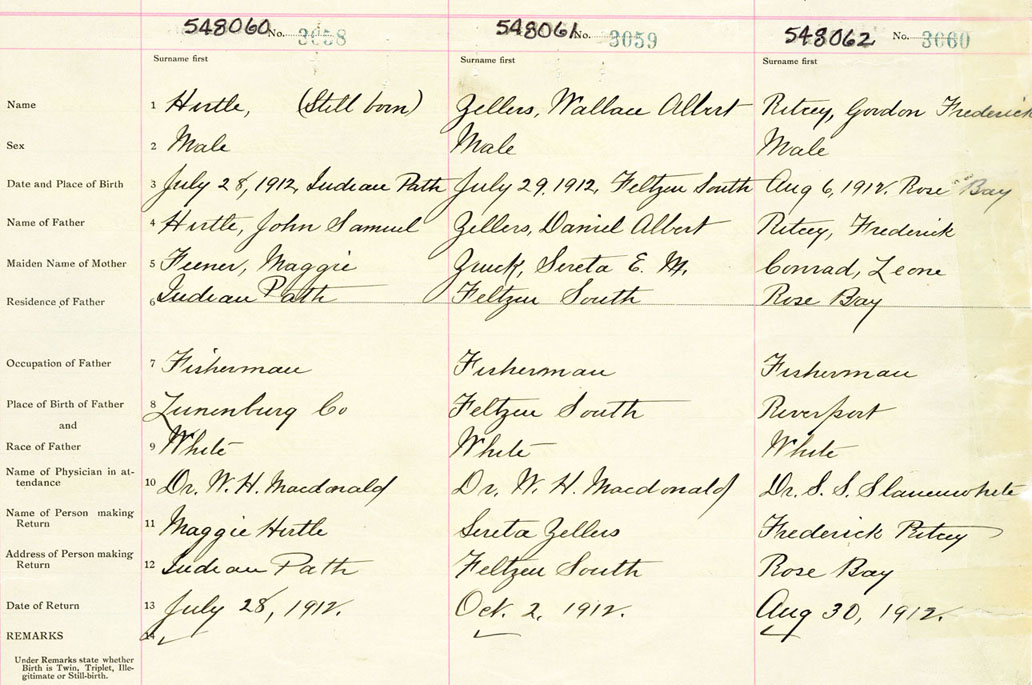 548060 No. 3058 548061 No. 3059 548062 No. 3060
Surname first Surname first Surname first
Name 1 Hirtle, (Still born) Zellers, Wallace Albert Ritcey, Gordon Frederick
Sex 2 Male Male Male
Date and Place of Birth 3 July 28, 1912, Indian Path July 29, 1912, Feltzen South Aug 6, 1912. Rose Bay
Name of Father 4 Hirtle, John Samuel Zellers, Daniel Albert Ritcey, Frederick
Maiden Name of Mother 5 Feener, Maggie Zruck, Sereta E. M. Conrad, Leone
Residence of Father 6 Indian Path Feltzen South Rose Bay
Occupation of Father 7 Fisherman Fisherman Fisherman
Place of Birth of Father 8 Lunenburg Co Feltzen South Riverport
and
Race of Father 9 White White White
Name of Physician in at-
tendance 10 Dr. W. H. Macdonald Dr. W. H. Macdonald Dr. S. S. Slauenwhite
Name of Person making
Return 11 Maggie Hirtle Sereta Zellers Frederick Ritcey
Address of Person making
Return 12 Indian Path Feltzen South Rose Bay
Date of Return 13 July 28, 1912. Oct. 2, 1912. Aug 30, 1912.
REMARKS 14
Under Remarks state whether
Birth is Twin, Triplet, Ille-
gitimate or Still-birth.